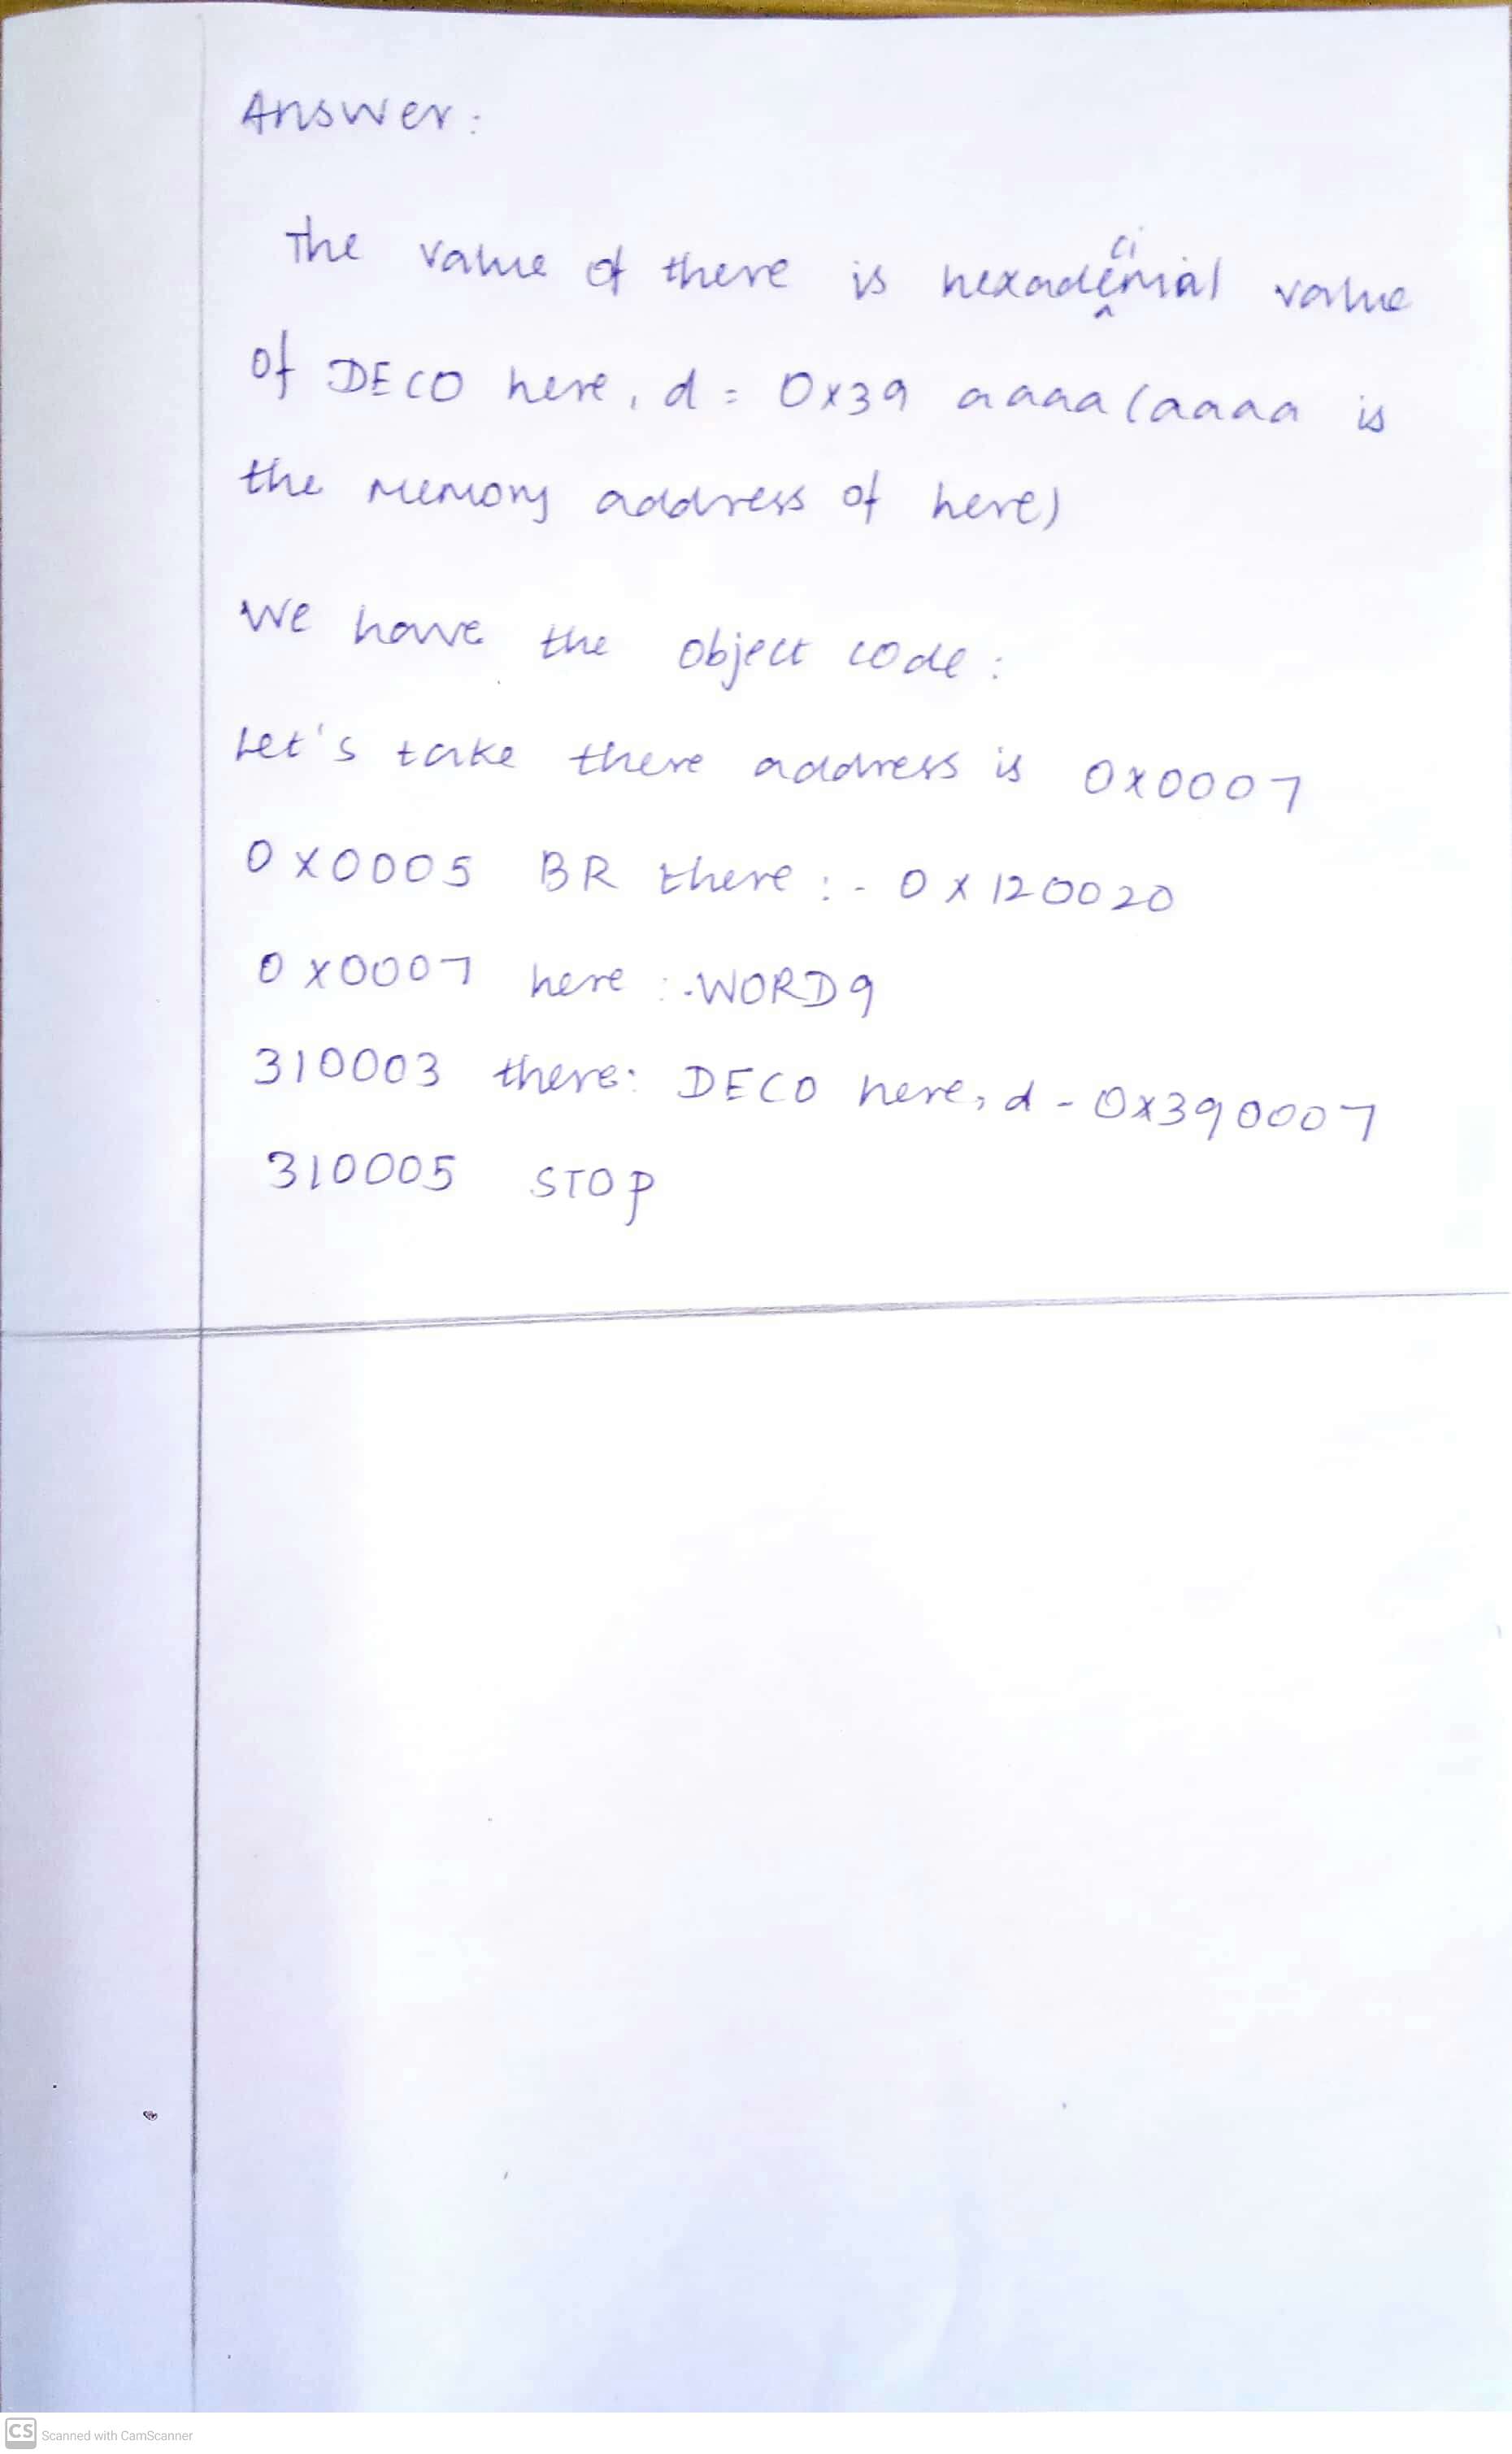 Answer:
The value of there is hexadecimial value
of DECO here, d = 0x39 aaaa (aaaa is
the memory address of here)
We have the object code:
Let's take there address is 0x0007
0x0005 BR there :- 0x120020
0x0007 here :-WORD9
310003 there: DECO here, d - 0x390007
310005 STOP
CS Scanned with CamScanner